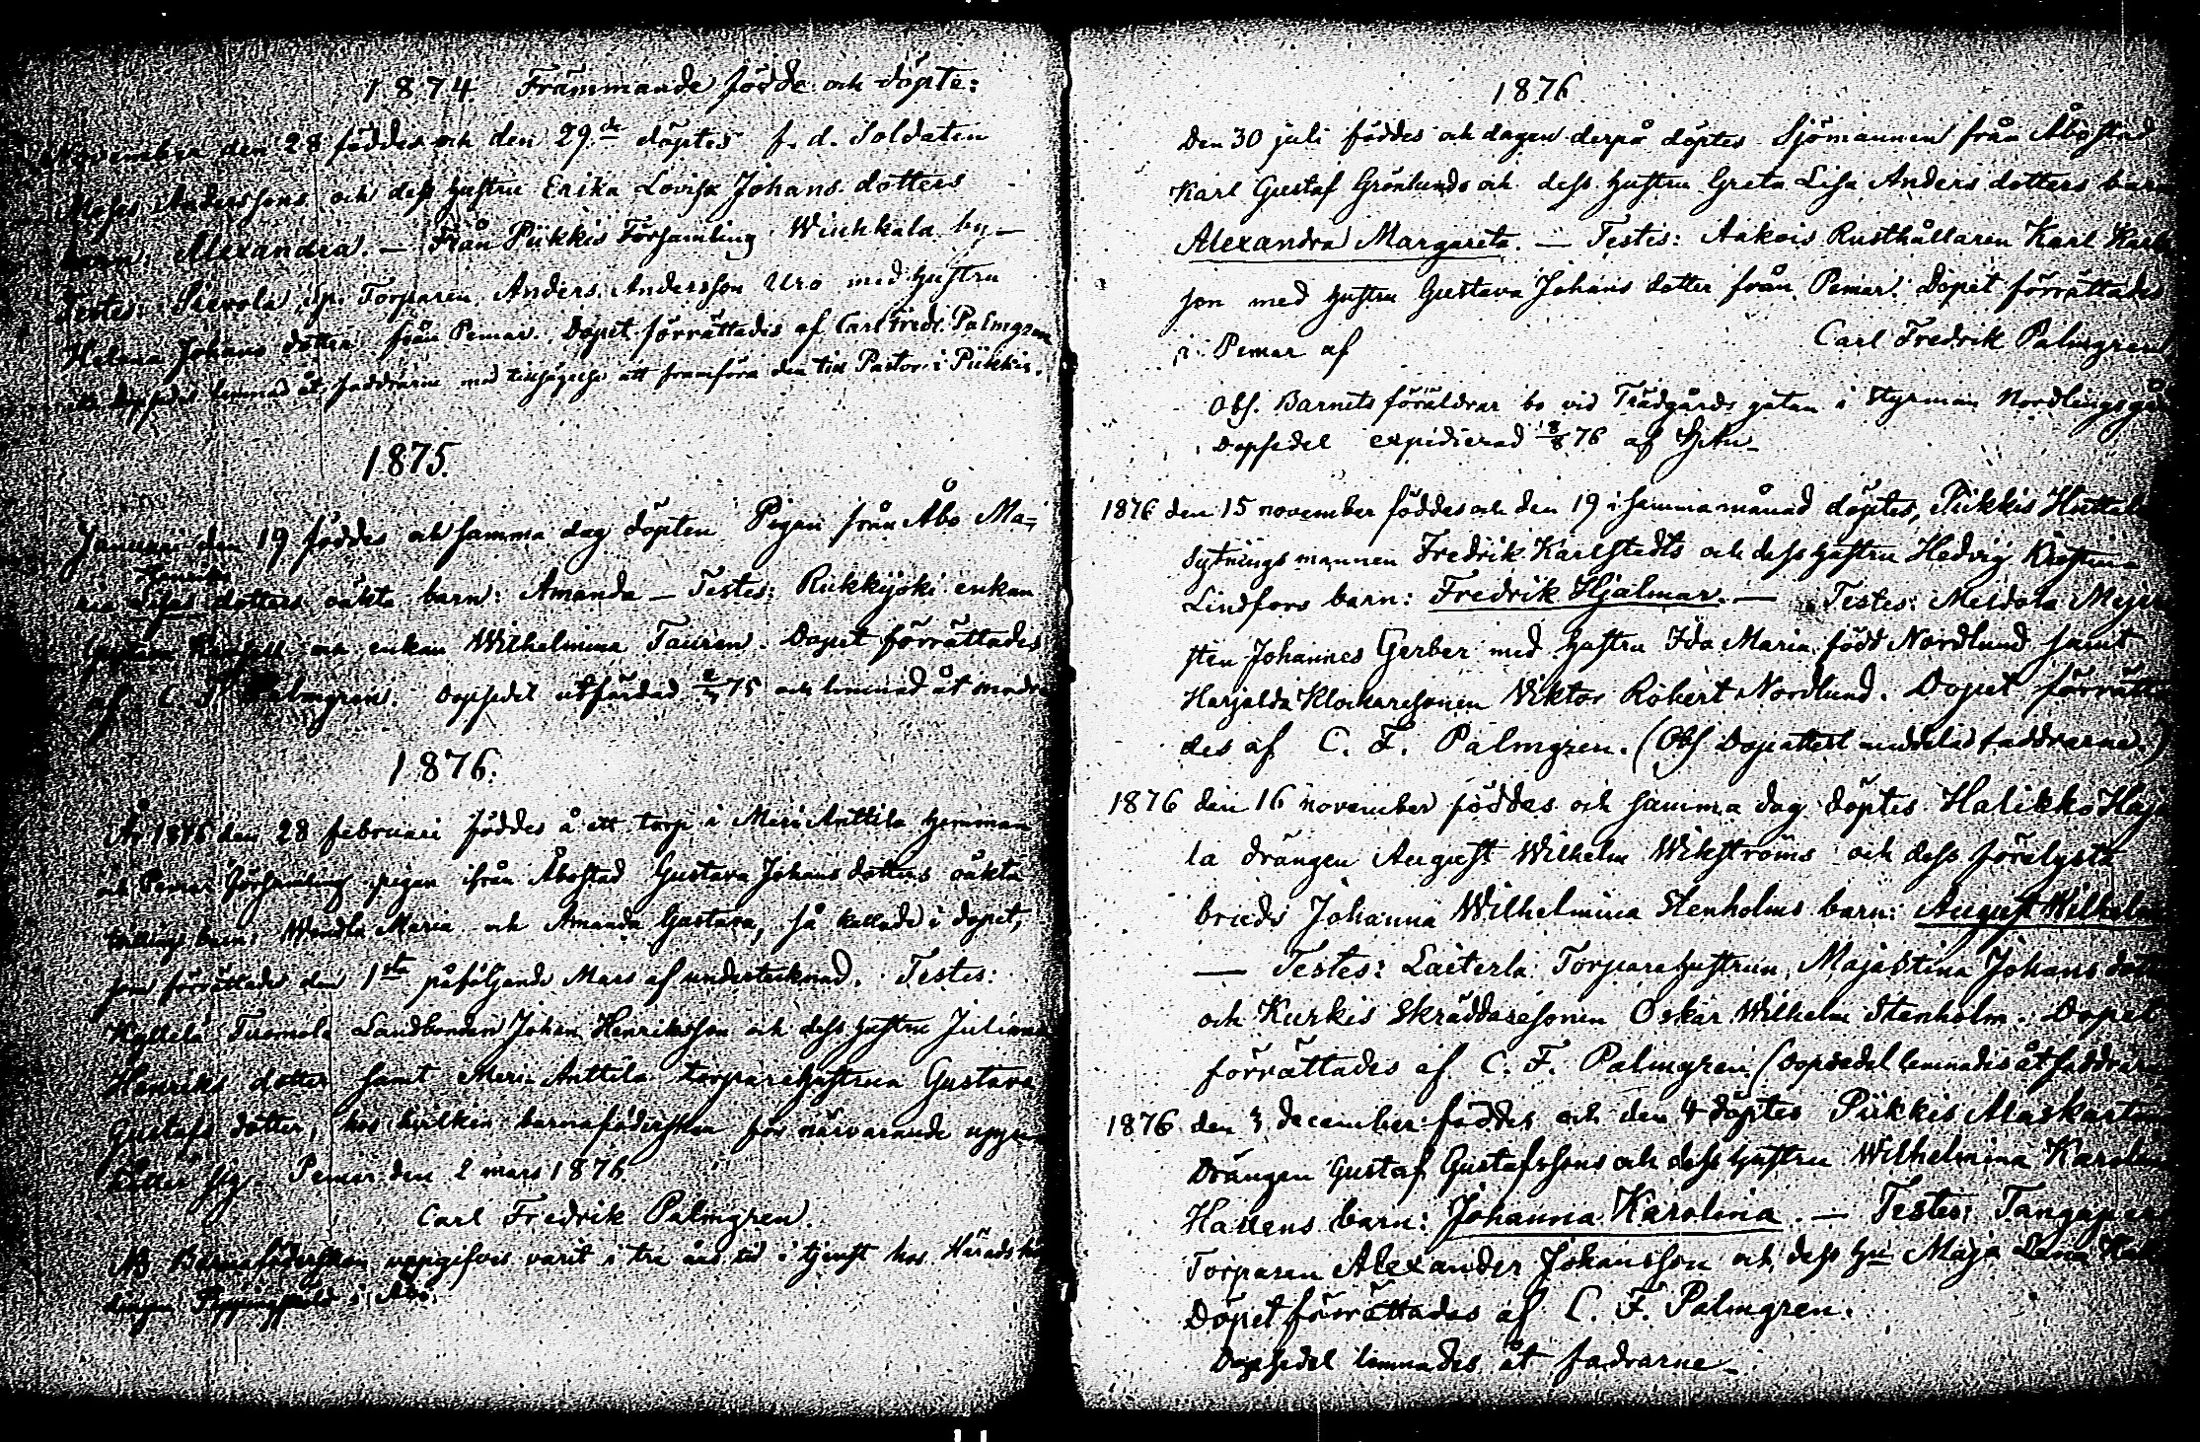 1874. Främmande födde och döpte:
November den 28 föddes och den 29de döptes f. d. Soldaten
Moses Anderssons och dess hustru Erika Lovisa Johans dotters
barn: Alexandra. — Från Piikkis Församling Wiuhkala by —
Testes: Sievola, Torparen Anders Andersson Uro med hustru
Helena Johans dotter från Pemar. Dopet förrättades af Carl Fredr. Palmgren
lemnad åt faddrarne med tillsägelse att framföra den till Pastor i Piikkis.
1875.
Januari den 19 föddes och samma dag döptes Pigan från Åbo Ma-
Henriks
ria Lisas dotters oäkta barn: Amanda — Testes: Rukkijoki enkan
och enkan Wilhelmina Tauren. Dopet förrättades
af C. F. Palmgren. Dopsedel utfärdad 75 och lemnad åt modren
1876.
År 1876 den 28 februari föddes å ett torp i Meri Anttila hemman
och Pemar församling pigan ifrån Åbo stad Gustava Johans dotters oäkta
tvillings barn: Wendla Maria och Amanda Gustava, så kallade i dopet,
som förrättades den 1sta påföljande Mars af undertecknad. Testes:
Kyttelä Tuomola Landbonden Johan Henriksson och dess hustru Juliana
Henriks dotter samt Meri-Anttila torparehustrun Gustava
Gustafs dotter, hos hvilken barnaföderskan för närvarande uppe-
håller sig. Pemar den 2 mars 1876
Carl Fredrik Palmgren.
NB Barnaföderskan uppgifves varit i tre års tid i tjenst hos Härads höf
dingen i Åbo.
1876
Den 30 juli föddes och dagen derpå döptes Sjömannen från Åbo stad
Karl Gustaf Grönlunds och dess hustru Greta Lisa Anders dotters barn
Alexandra Margareta. — Testes: Aakois Rusthållaren Karl Karls
son med hustru Gustava Johans dotter från Pemar. Dopet förrättades
i Pemar af
Carl Fredrik Palmgren,
Obs. Barnets föräldrar bo vid Trädgårds gatan i Styrman Nordlings gård
Dopsedel expedierad 18/8 76 af
1876 den 15 november föddes och den 19 i samma månad döptes, Piikkis Huttala
Sytningsmannen Fredrik Karlstedts och dess hustru Hedvig Kristina
Lindfors barn: Fredrik Hjalmar. — Testes: Meldola Mejeri
sten Johannes Gerber med hustru Ida Maria född Nordlund samt
Harjalda Klockaresonen Viktor Robert Nordlund. Dopet förrätta-
des af C. F. Palmgren. (Obs Dopattest meddelad faddrarne.)
1876 den 16 november föddes och samma dag döptes Halikko Haja
la drängen August Wilhelm Wikströms och dess förelysta
bruds Johanna Wilhelmina Stenholms barn: August Wilhelm
— Testes: Laiterla Torparehustrun, Maja Stina Johans dotter
och Kurkis Skräddaresonen Oskar Wilhelm Stenholm. Dopet
förrättades af C. F. Palmgren (Dopsedel lemnades åt faddrarne
1876 den 3 december föddes och den 4 döptes Piikkis Alaskartano
Drängen Gustaf Gustafssons och dess hustru Wilhelmina Karolina
barn: Johanna Karolina. — Testes:
Torparen Alexander Johansson och dess hu Maja Lena
Dopet förrättades af C. F. Palmgren.
Dopsedel lemnades åt fadrarne